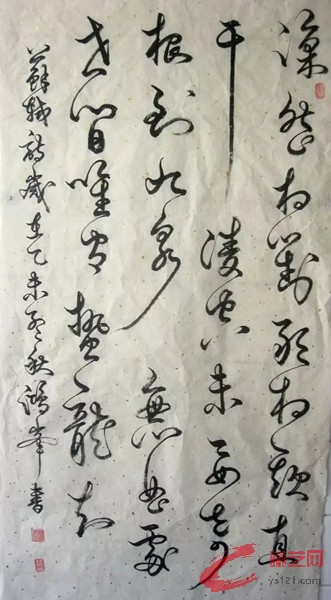 凜然相對敢相欺直
干凌空未要奇
根到九泉無曲處
世間唯有蟄龍知
蘇軾詩歲在乙未秋鴻峯書
艺网
ys121.com